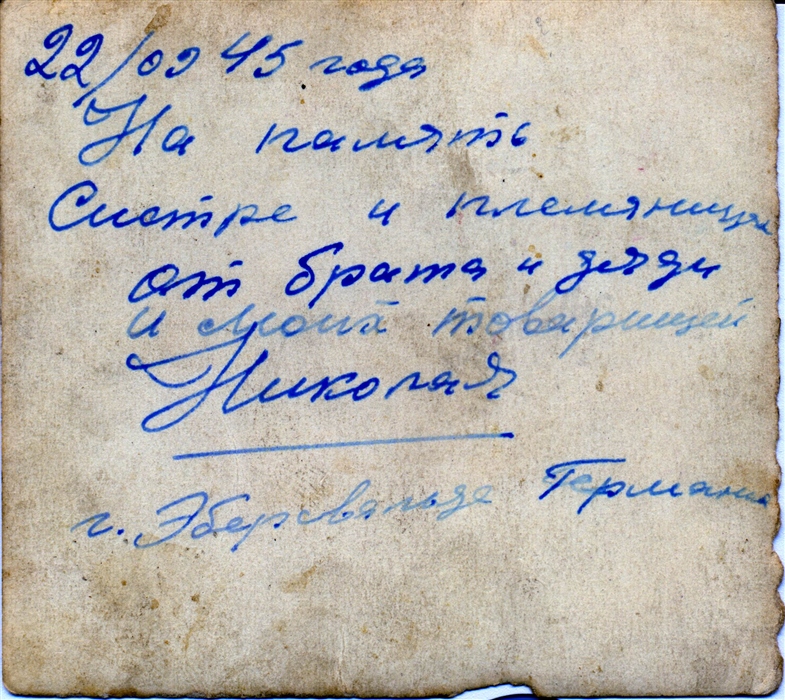 22/09 45 года
На память
Систре и племянице
от брата и дяди
и моих товарищей
Николая
г. Эберсвальде Германия